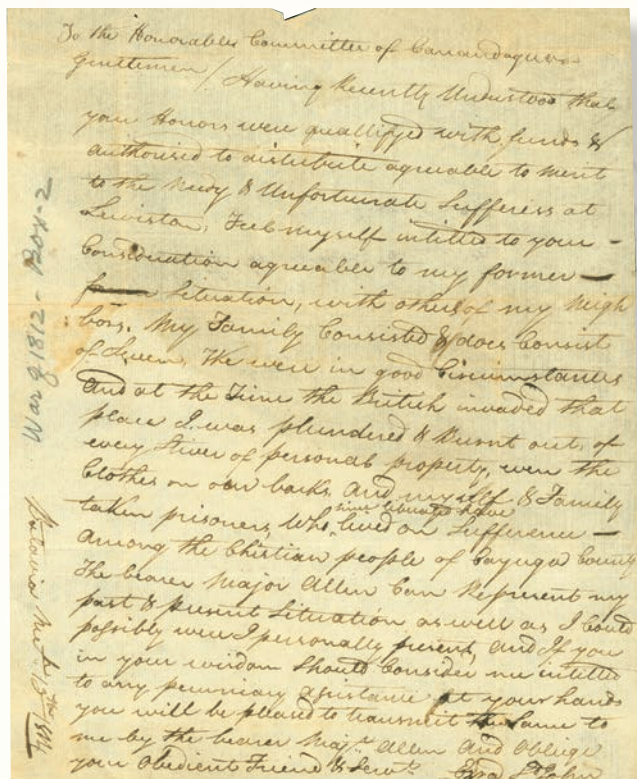 To the Honorables Committee of Canandaqua
Gentlemen / Having Recently Understood that
your Honors were quallifyed with funds &
authorised to distribute agreable to merit
to the Needy & Unfortunate Sufferers at
Lewiston, Feel myself intitled to your -
Consideration agreable to my former -
Situation, with others of my Neigh
bors. My Family Consisted & does Consist
of Seven, We were in good Circumstances
And at the Time the British invaded that
place I was plundered & Burnt out, of
every Stiver of personal property, even the
Clothes on our backs, And myself & Family
taken prisoners, Who, since liberated have lived on Sufference -
among the Christian people of Cayuga County
The bearer Major Allen Can Represent my
past & present Situation as well as I Could
possibly were I personally present, And If you
in your wisdom Should Consider me intitled
to any pecuniary assistance at your hands
you will be pleased to transmit the Same to
me by the bearer Majr. Allen And Oblige
your Obedient Friend & Servt.
War of 1812 - Box-2
Batavia 15th 1814